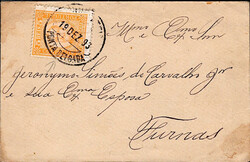 19 DEZ. 93
PONTA DELGADA
Illmo e Exmo Snr
Jeronymo Simões de Carvalho Jr
e sua Exma Esposa
Furnas